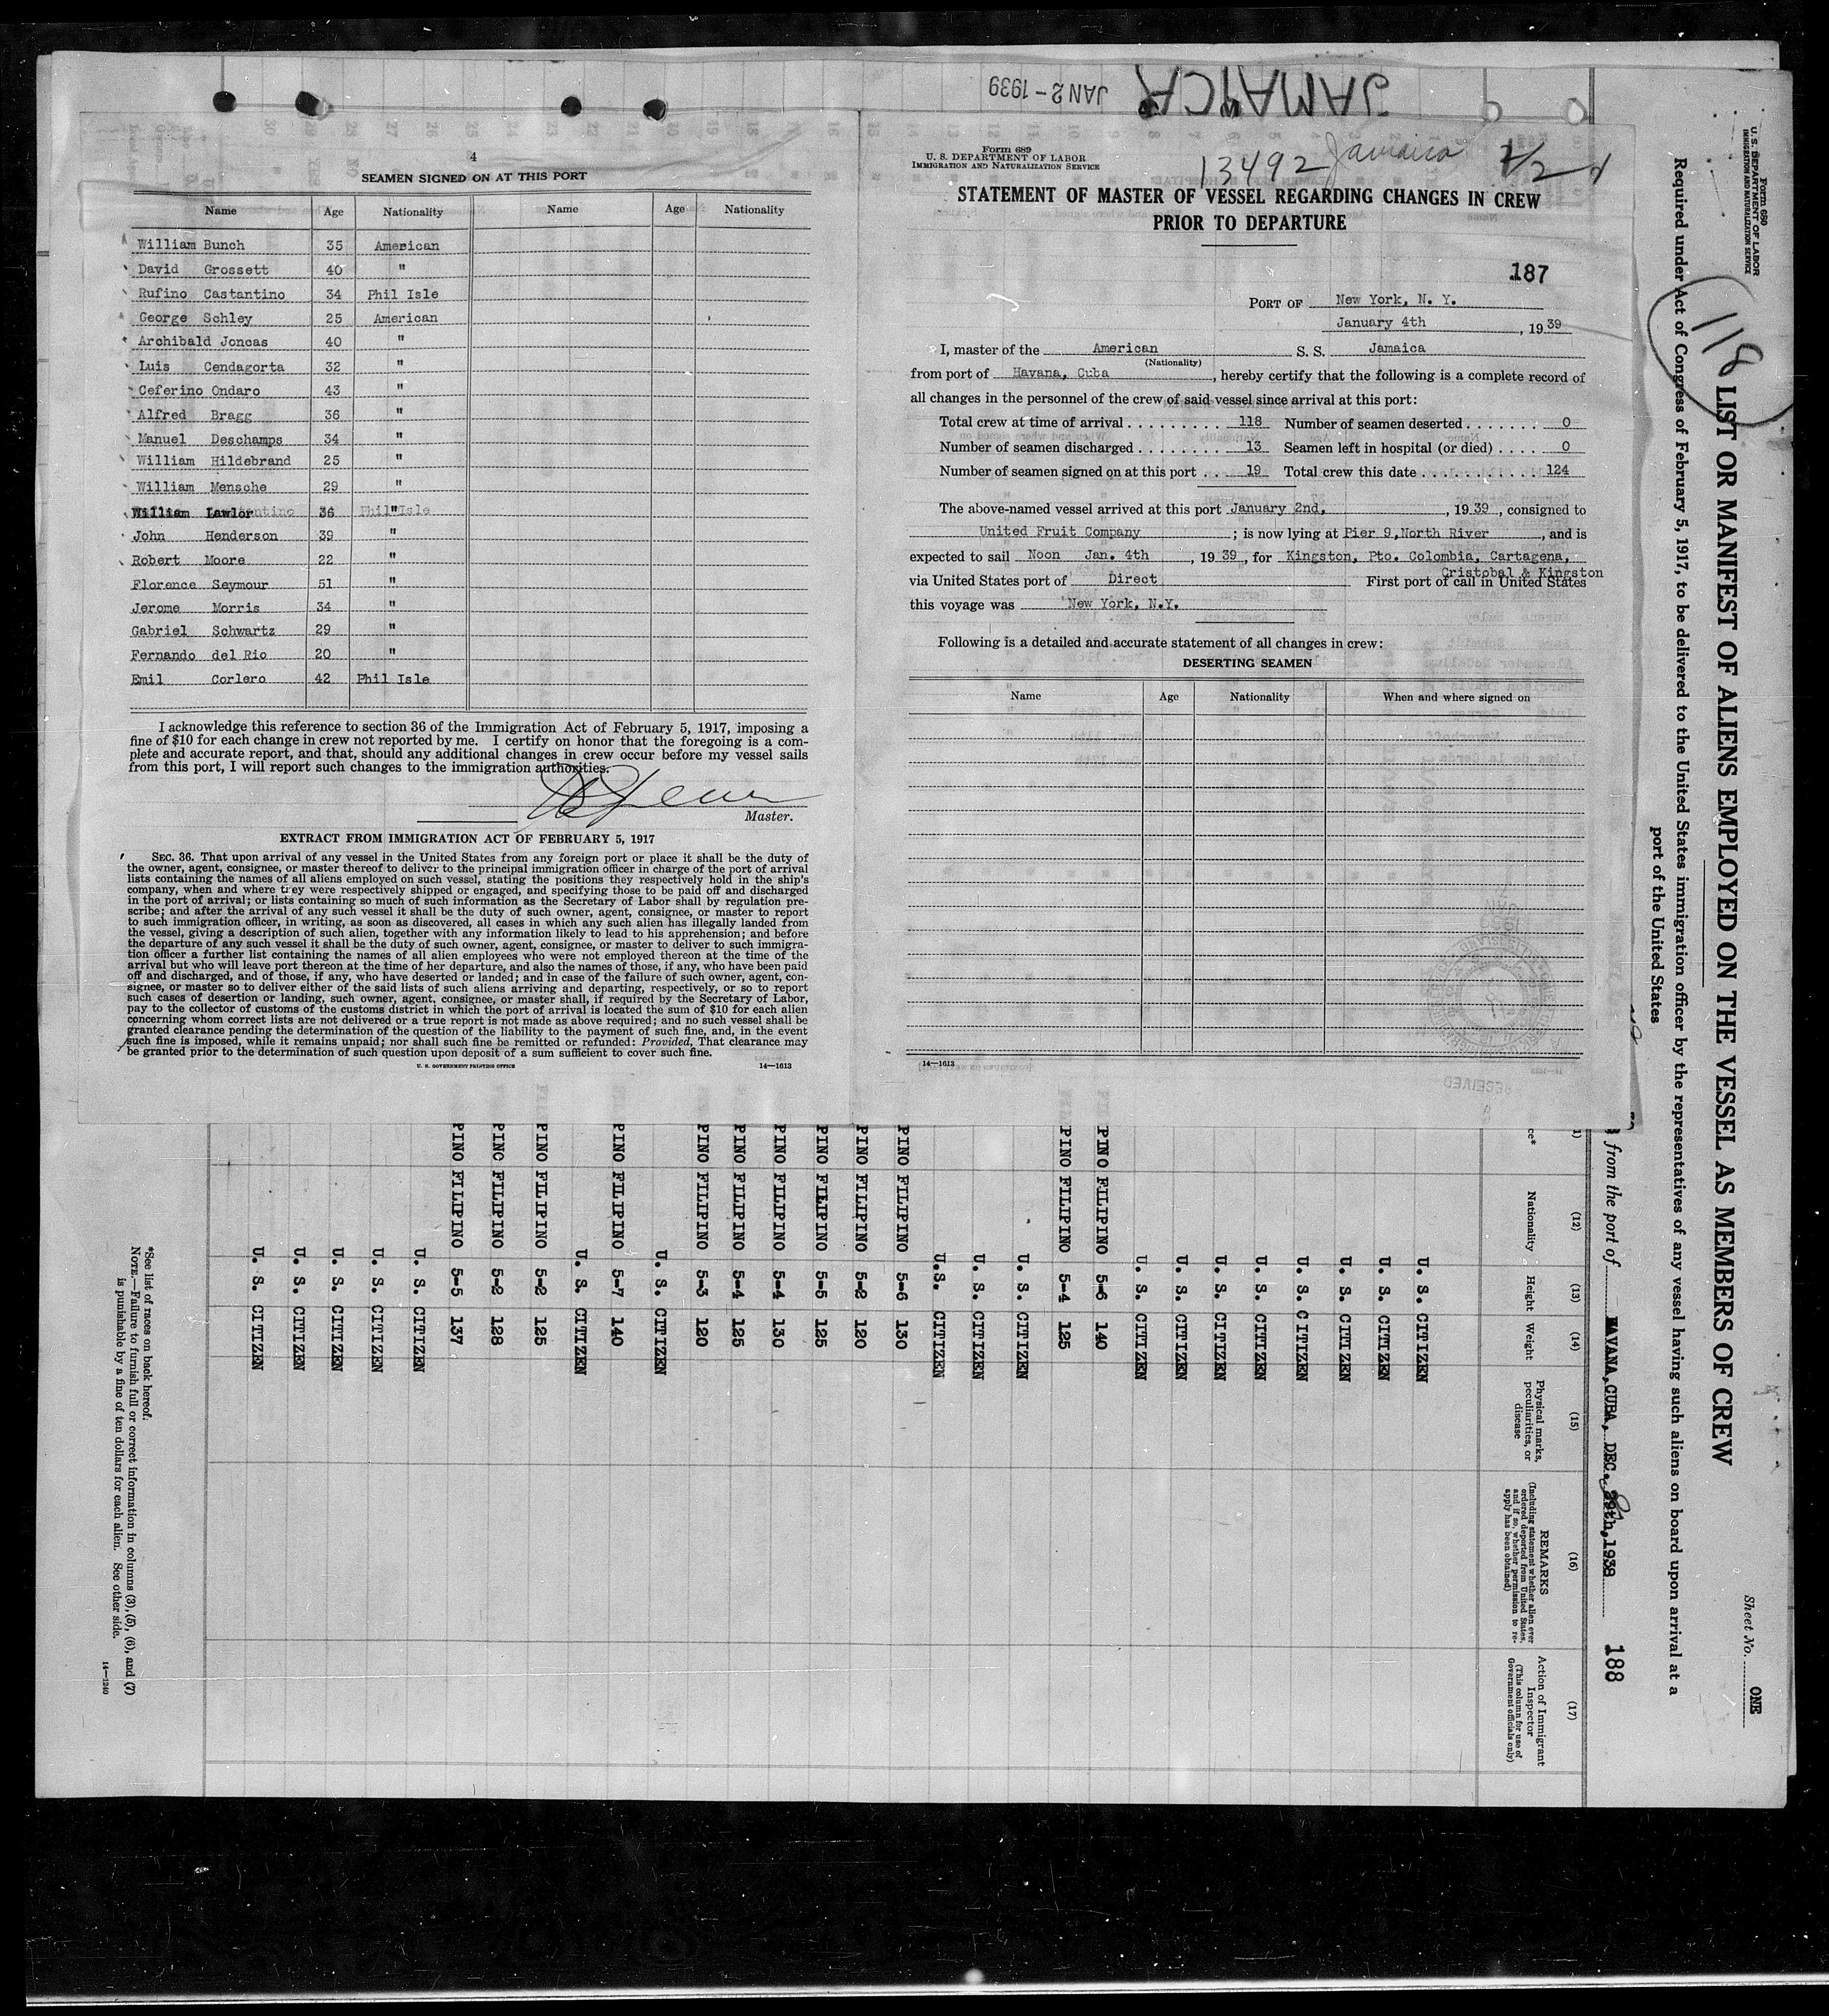 JAN 2 - 1939
JAMAICA
4
SEAMEN SIGNED ON AT THIS PORT
Name Age Nationality Name Age Nationality
William Bunch 35 American
David Grossett 40 "
Rufino Castantino 34 Phil Isle
George Schley 25 American
Archibald Joncas 40 "
Luis Cendagorta 32 "
Ceferino Ondaro 43 "
Alfred Bragg 36 "
Manuel Deschamps 34 "
William Hildebrand 25 "
William Mensche 29 "
William Lawlor 36 "
John Henderson 39 "
Robert Moore 22 "
Florence Seymour 51 "
Jerome Morris 34 "
Gabriel Schwartz 29 "
Fernando del Rio 20 "
Emil Corlero 42 Phil Isle
I acknowledge this reference to section 36 of the Immigration Act of February 5, 1917, imposing a
fine of $10 for each change in crew not reported by me. I certify on honor that the foregoing is a com-
plete and accurate report, and that, should any additional changes in crew occur before my vessel sails
from this port, I will report such changes to the immigration authorities.
Master.
EXTRACT FROM IMMIGRATION ACT OF FEBRUARY 5, 1917
SEC. 36. That upon arrival of any vessel in the United States from any foreign port or place it shall be the duty of
the owner, agent, consignee, or master thereof to deliver to the principal immigration officer in charge of the port of arrival
lists containing the names of all aliens employed on such vessel, stating the positions they respectively hold in the ship's
company, when and where they were respectively shipped or engaged, and specifying those to be paid off and discharged
in the port of arrival; or lists containing so much of such information as the Secretary of Labor shall by regulation pre-
scribe; and after the arrival of any such vessel it shall be the duty of such owner, agent, consignee, or master to report
to such immigration officer, in writing, as soon as discovered, all cases in which any such alien has illegally landed from
the vessel, giving a description of such alien, together with any information likely to lead to his apprehension; and before
the departure of any such vessel it shall be the duty of such owner, agent, consignee, or master to deliver to such immigra-
tion officer a further list containing the names of all alien employees who were not employed thereon at the time of the
arrival but who will leave port thereon at the time of her departure, and also the names of those, if any, who have been paid
off and discharged, and of those, if any, who have deserted or landed; and in case of the failure of such owner, agent, con-
signee, or master so to deliver either of the said lists of such aliens arriving and departing, respectively, or so to report
such cases of desertion or landing, such owner, agent, consignee, or master shall, if required by the Secretary of Labor,
pay to the collector of customs of the customs district in which the port of arrival is located the sum of $10 for each alien
concerning whom correct lists are not delivered or a true report is not made as above required; and no such vessel shall be
granted clearance pending the determination of the question of the liability to the payment of such fine, and, in the event
such fine is imposed, while it remains unpaid; nor shall such fine be remitted or refunded: Provided, That clearance may
be granted prior to the determination of such question upon deposit of a sum sufficient to cover such fine.
U. S. GOVERNMENT PRINTING OFFICE 14—1613
Form 689
U. S. DEPARTMENT OF LABOR
IMMIGRATION AND NATURALIZATION SERVICE
13492 Jamaica 1/2
STATEMENT OF MASTER OF VESSEL REGARDING CHANGES IN CREW
PRIOR TO DEPARTURE
187
PORT OF New York, N. Y.
January 4th, 1939
I, master of the American S. S. Jamaica
(Nationality)
from port of Havana, Cuba, hereby certify that the following is a complete record of
all changes in the personnel of the crew of said vessel since arrival at this port:
Total crew at time of arrival 118 Number of seamen deserted 0
Number of seamen discharged 13 Seamen left in hospital (or died) 0
Number of seamen signed on at this port 19 Total crew this date 124
The above-named vessel arrived at this port January 2nd, , 1939, consigned to
United Fruit Company ; is now lying at Pier 9, North River, and is
expected to sail Noon Jan. 4th, 1939, for Kingston, Pto. Colombia, Cartagena,
Cristobal & Kingston
via United States port of Direct First port of call in United States
this voyage was New York, N.Y.
Following is a detailed and accurate statement of all changes in crew:
DESERTING SEAMEN
Name Age Nationality When and where signed on
14—1613
RECEIVED
Form 680
U. S. DEPARTMENT OF LABOR
IMMIGRATION AND NATURALIZATION SERVICE
118
LIST OR MANIFEST OF ALIENS EMPLOYED ON THE VESSEL AS MEMBERS OF CREW
Sheet No. ONE
Required under Act of Congress of February 5, 1917, to be delivered to the United States immigration officer by the representatives of any vessel having such aliens on board upon arrival at a
port of the United States
from the port of HAVANA, CUBA, DEC. 29th, 1938
188
(12) (13) (14) (15) (16) (17)
Nationality
Height
Weight
Physical marks, peculiarities, or disease
REMARKS
(Including statement whether alien ever ordered deported from United States, and if so, whether permission to re-apply has been obtained)
Action of Immigrant Inspector
(This column for use of Government officials only)
U. S. CITIZEN
U. S. CITIZEN
U. S. CITIZEN
U. S. CITIZEN
U. S. CITIZEN
U. S. CITIZEN
U. S. CITIZEN
U. S. CITIZEN
PINO FILIPINO 5-6 140
PINO FILIPINO 5-4 125
U. S. CITIZEN
U. S. CITIZEN
U.S. CITIZEN
PINO FILIPINO 5-6 130
PINO FILIPINO 5-2 120
PINO FILIPINO 5-5 125
PINO FILIPINO 5-4 130
PINO FILIPINO 5-4 125
PINO FILIPINO 5-3 120
U. S. CITIZEN
PINO FILIPINO 5-7 140
U. S. CITIZEN
PINO FILIPINO 5-2 125
PINO FILIPINO 5-2 128
PINO FILIPINO 5-5 137
U. S. CITIZEN
U. S. CITIZEN
U. S. CITIZEN
U. S. CITIZEN
U. S. CITIZEN
*See list of races on back hereof.
NOTE.—Failure to furnish full or correct information in columns (3), (5), (6), and (7)
is punishable by a fine of ten dollars for each alien. See other side.
14—1240